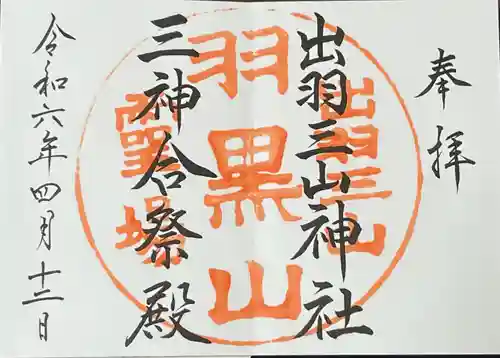 奉拝
出羽三山神社
三神合祭殿
令和六年四月十二日
出羽三山
羽黒山